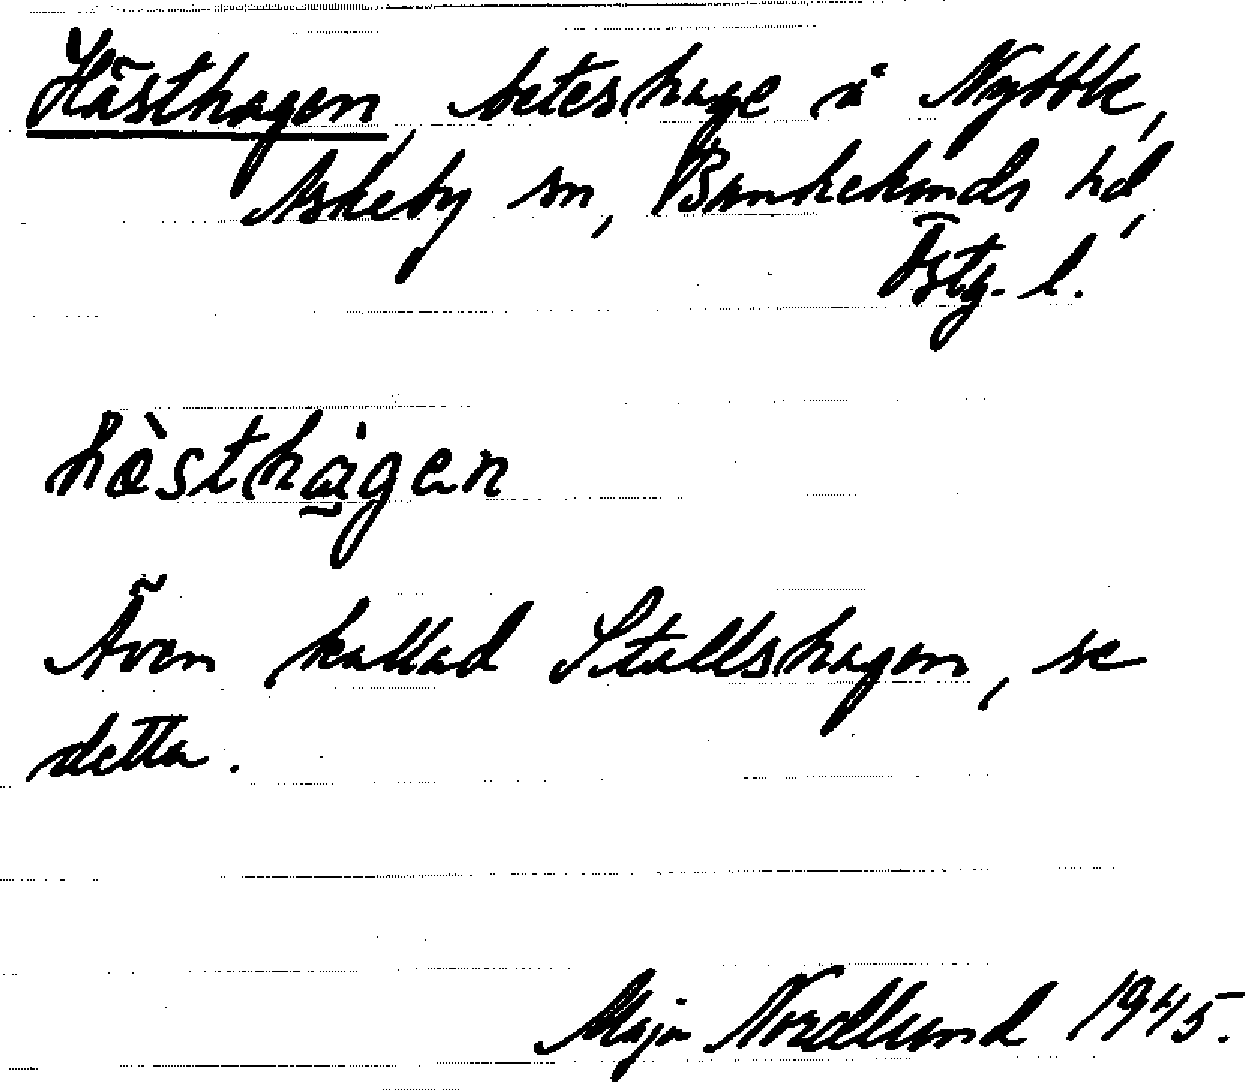 Hästhagen, beteshage å Nyttle,
Askeby sn, Bankekinds hd,
Östg. l.
hà̈sthá̱gen
Även kallad Stallshagen, se
detta.
Maja Nordlund 1945.